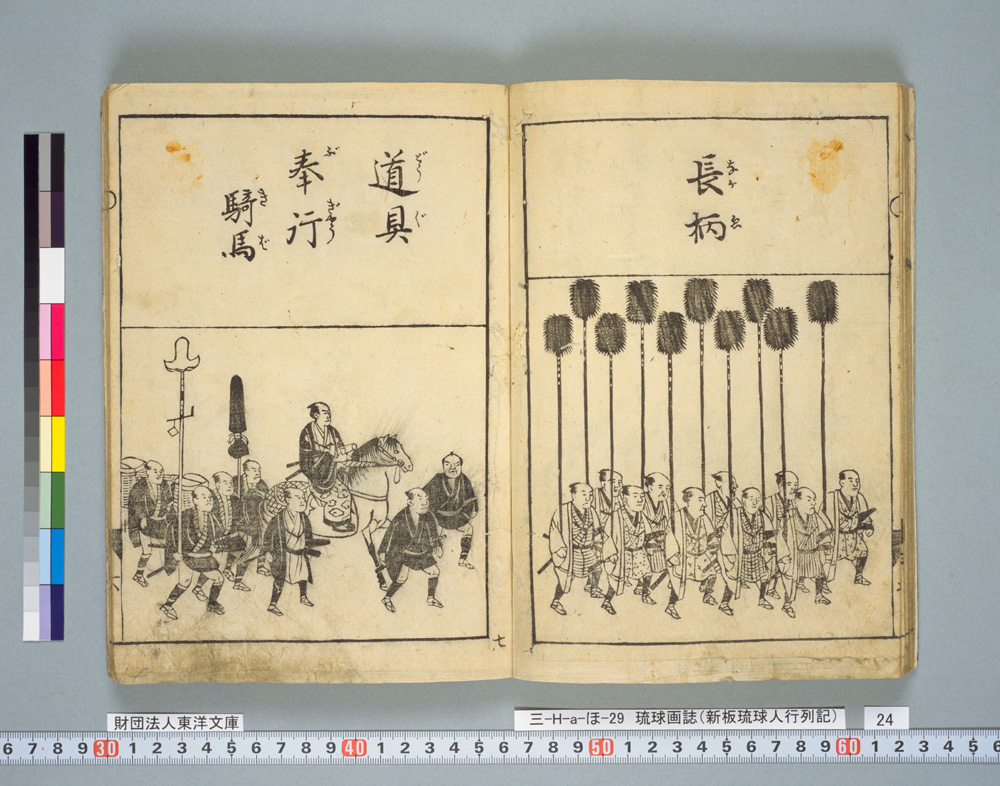 長柄
ながゑ
道具
どうぐ
奉行
ぶぎやう
騎馬
きば
七
財団法人東洋文庫
三-H-a-ほ-29 琉球画誌(新板琉球人行列記)
24
6 7 8 9 30 1 2 3 4 5 6 7 8 9 40 1 2 3 4 5 6 7 8 9 50 1 2 3 4 5 6 7 8 9 60 1 2 3 4 5 6